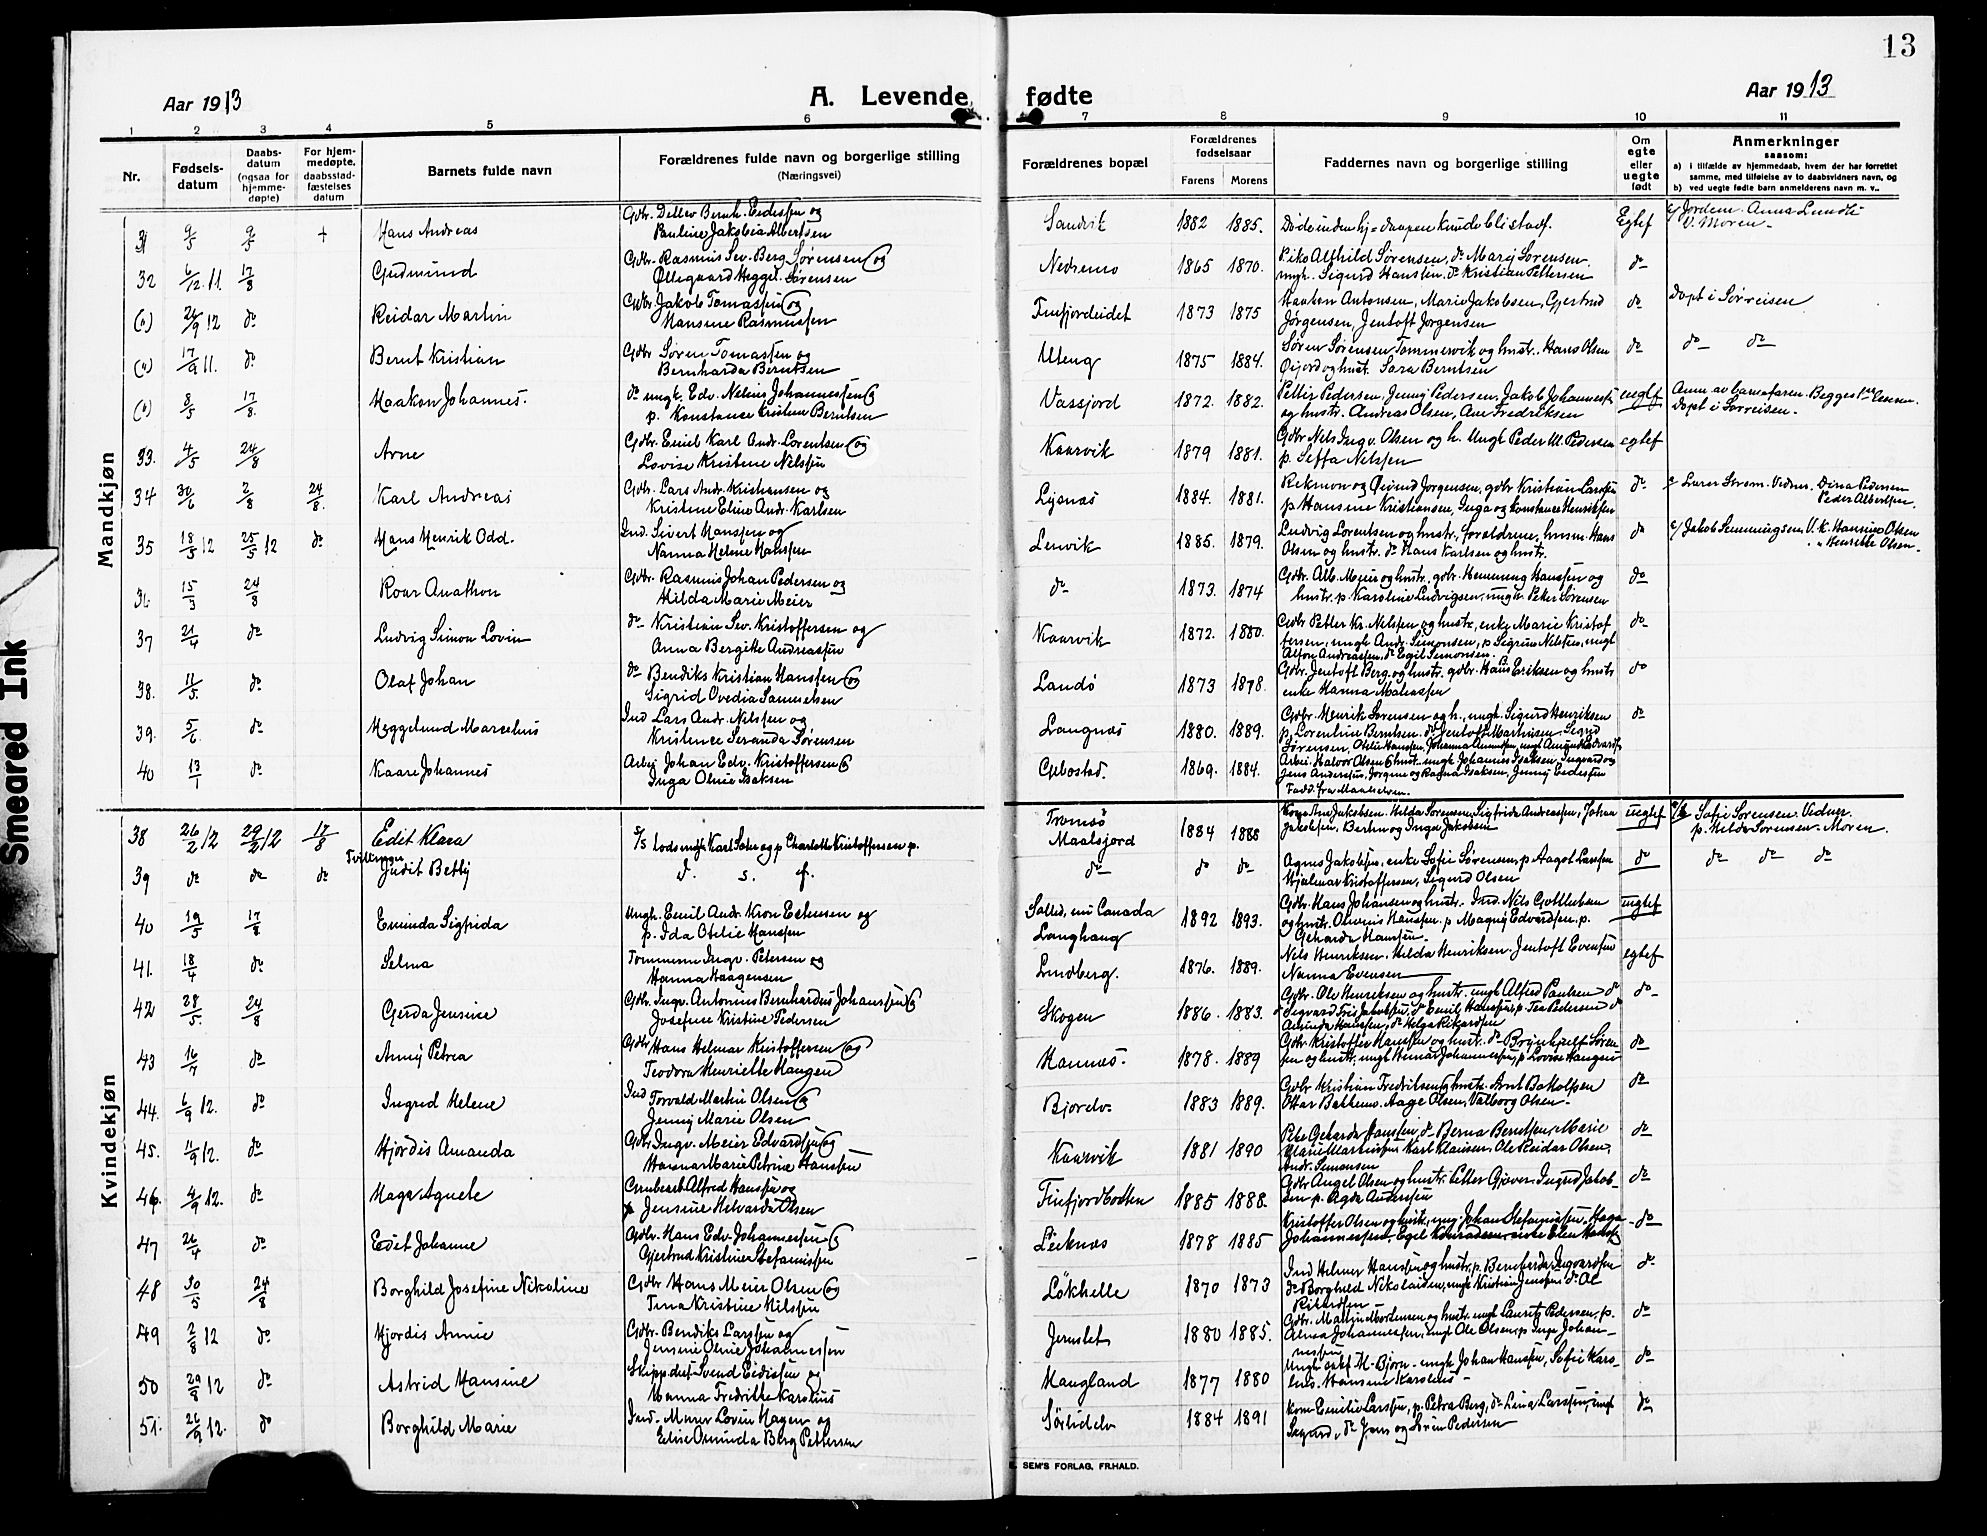 13
Aar 1913
A. Levende fødte
Aar 1913
1 2 3 4 5 6 7 8 9 10 11
Nr.
Fødsels-
datum
Daabs-
datum
(ogsaa for
hjemme-
døpte)
For hjem-
medøpte,
daabsstad-
fæstelses
datum
Barnets fulde navn
Forældrenes fulde navn og borgerlige stilling
(Næringsvei)
Forældrenes bopæl
Forældrenes
fødselsaar
Farens Morens
Faddernes navn og borgerlige stilling
Om
egte
eller
uegte
født
Anmerkninger
saasom:
a) i tilfælde av hjemmedaab, hvem der har forrettet
samme, med tilføielse av to daabsvidners navn, og
b) ved uegte fødte barn anmelderens navn m. v..
Mandkjøn
31 9/5 9/5 + Hans Andreas
Gdbr. Detlev Bernh. Eedessen og
Pauline Jakobia Albertsen
Sandvik 1882 1885. Egtef
V. Moren.
32 6/12.11. 17/8 Gudmund
Gdbr. Rasmus Sev. Berg Sørensen og
Øllegaard Heggel. Sørensen
Nedremo 1865 1870.
ungk. Sigurd Hanssen, do Kristian Pettersen do
(o) 24/9 12 do Reidar Martin
Gdbr Jakob Tomassen og
Hansine Rasmussen
Finfjordeidet 1873 1875
Haakon Antonsen, Marie Jakobsen, Gjertrud
Jørgensen, Jentoft Jørgensen do Døpt i Sørreisen
(o) 17/9 11. do Bernt Kristian
Gdbr Søren Tomassen og
Bernharda Berntsen
Uteng 1875 1884.
Søren Sørensen Tømmervik og hustr. Hans Olsen
Øijord og hust. Sara Berntsen do do do
(o) 8/5 17/8. Haakon Johannes.
do ungk. Edv. Nelius Johannessen og
p. Konstance Kristine Berntsen
Vassjord 1872. 1882.
Petter Pedersen, Jenny Pedersen, Jakob Johannessen
og hustr. Andreas Olsen, Ane Fredriksen uegtef
Anm. av barnefaren.
Døpt i Sørreisen.
33. 4/5 24/8 Arne
Gdbr. Emil Karl Andr. Lorentsen og
Lovise Kristine Nilssen
Kaarvik 1879 1881.
Gdbr Nils Ingv. Olsen og h. Ungk Peder M. Pedersen
p. Seffa Nilssen egtef
34 30/6 2/8 24/8. Karl Andreas
Gdbr. Lars Andr. Kristiansen og
Kristine Eline Andr. Karlsen
Lysnæs 1884. 1881.
og Øivind Jørgensen, gdbr Kristian Larssen
p Hansine Kristiansen, Inga og Konstance Henriksen do
Vidner. Dina Pedersen
Peder Albertsen
35 18/5 12 25/5 12 do Hans Henrik Odd.
Ind. Sivert Hanssen og
Nanna Helene Hanssen
Lenvik 1885. 1879.
Ludvig Lorentsen og hustr, forældrene, husm. Hans
Olsen og hustr. do Hans Karlsen og hustr. do
Jakob Semmingsen V. K. Hansine Olsen
" Henrette Olsen.
36 15/3 24/8 Roar Anathon
Gdbr. Rasmus Johan Pedersen og
Hilda Marie Meier
do 1873. 1874
Gdbr. Alb. Meier og hustr, gdbr. Hemming Hanssen og
hustr. p Karoline Ludvigsen, ungk. Petter Sørensen do
37 21/4 do Ludvig Simon Lovin
do Kristian Sev. Kristoffersen og
Anna Bergitte Andreassen
Kaarvik 1872. 1880.
Gdbr Petter Kr. Nilssen og hustr, enke Marie Kristof
fersen, ungk. Andr. Simonsen, p Sigrun Nilssen, ungk
Alfon Andreassen, do Egil Simonsen. do
38. 11/5 do Olaf Johan
do Bendiks Kristian Hanssen og
Sigrid Ovedia Samuelsen
Landø 1873 1878.
Gdbr. Jentoft Berg. og hustr. gdbr. Hans Eriksen og hustr
enke Hanna do
39. 5/6. do Heggelund Marcelius
Ind Lars Andr. Nilssen og
Kristence Seranda Sørensen
Langnæs 1880. 1889.
Gdbr. Henrik Sørensen og h., ungk. Sigurd Henriksen
p. Lorentine Berntsen. do Jentoft Martinsen, Sigrid
Sørensen, do
40 13/1 do Kaare Johannes
Arbei Johan Edv. Kristoffersen og
Inga Oline Isaksen
Gibostad. 1869. 1884.
Arbei. Halvor Olsen og hust. ungk Johannes Isaksen
Jens Andersen, Jørgine og Ragna Isaksen, Jenny
Fadd. fra Maalselven.
Kvindekjøn
38 26/2 12 29/2 12 17/8 Edit Klara
Lods ungk Karl og p Charlotte Kristoffersen p.
Tromsø
Maalsjord 1884 1888
Jakobsen, Hilda Sørensen, Sigfrida Andreassen, Johan
Jakobsen, Berte og Inga Jakobsen uegtef
Sofie Sørensen. Vidner.
p. Hilda Sørensen. Moren.
Tvillinger
39 do do do Judit Betty
d. s. f.
do do do
Agnes Jakobsen, enke Sofie Sørensen, p Aagot Larssen
Hjalmar Kristoffersen, Sigurd Olsen do do do do
40 19/5 17/8 Eminda Sigfrida
Ungk. Emil Andr. Kron Eelinsen og
p. Ida Otelie Hanssen
Canada
Langhaug 1892 1893.
Gdbr. Hans Johansen og hustr. Ind. Nils
og hustr. Hanssen. p Magny Edvardsen, p.
Geharda Hanssen. uegtef
41. 18/4 do Selma
Tømmerm Ingv. Petersen og
Hanna Haagensen
Lundberg. 1876. 1889.
Nils Henriksen. Hilda Henriksen. Jentoft Evensen
Nanna Evensen egtef
42 28/5. 24/8 Gerda Jensine
Gdbr. Ingv. Antonius Bernhardus Johanssen og
Josefine Kristine Pedersen
Skogen 1886. 1883.
Gdbr. Ole Henriksen og hustr. ungk Alfred Paulsen do
Hanssen, do Helga Rikardsen do
43 16/7 do Anny Petrea
Gdbr Hans Helmar Kristoffersen og
Teodora Henriette Haugen
Hannæs. 1878. 1889
Gdbr Kristoffer Hanssen og hustr. do Brynhjulf Søren
sen og hustr, ungk Johannessen, p Lovise Haugen do
44. 6/9 12. do Ingrid Helene
Ind Torvald Martin Olsen og
Jenny Marie Olsen
Bjorelv. 1883 1889.
Gdbr Kristian Fredriksen og hustr. Arnt Batholfsen
Ottar Aage Olsen, Valborg Olsen. do
45. 11/9 12. do Hjørdis Amanda
Gdbr Ingv. Meier Edvardsen og
Hanna Marie Petrine Hanssen
Kaarvik 1881 1890
Pike Geharda Hanssen, do Berna Berntsen, Marie
Martinssen Karl Klausen, Ole Reidar Olsen,
Andr. Simonsen do
46. 4/9 12. do Haga Agnete
Alfred Hanssen og
Jensine Helvarda Olsen
Finfjordbotten 1885 1888.
Gdbr Angel Olsen og hustr. Petter Gjøver. Ingrid Jakob
sen p. Agda Andersen do
47 26/4 do Edit Johanne
Gdbr. Hans Edv. Johannessen og
Gjertrud Kristine Stefanussen
Leiknæs 1878 1885
Kristoffer Olsen og hustr., ung. Johan Stefanussen. Haga
Johannessen, Egil Konradsen, enke Elen do
48 30/5 24/8 Borghild Josefine Nikoline
Gdbr Hans Meier Olsen og
Tina Kristine Nilssen
Løkhelle 1870 1873
Ind Helmer Hanssen og hustr, p. Bernharda Ingvardsen
do Borghild Nikolaisen, ungk Kristian Jenssen do Ol
Rikardsen do
49 2/8 12 do Hjordis Annie
Gdbr. Bendiks Larssen og
Jensine Oline Johannessen
Jernslet 1880 1885.
Gdbr. Martin Mortensen og hustr ungk Lauritz Pedersen, p.
Johannessen, ungk Ole Olsen, p Inga Johan-
nessen do
50 29/8 12 do Astrid Hansine
Svend Eidissen og
Hanna Fredrikke Karolius
Haugland 1877 1880
M. Bjørn. ungk Johan Hanssen, Sofie Karo-
lius. Hansine Karolius do
51. 26/9 12. do Borghild Marie
Ind. Murer Lovin Hagen og
Elise Osminda Berg Pettersen
Sørlidelv 1884 1891
Emilie Larssen, p. Petra Berg, do Lina Larssen, ungk
Sigurd, do Jens og Søren Pedersen do
E. SEM'S FORLAG, FR.HALD.
Smeared Ink